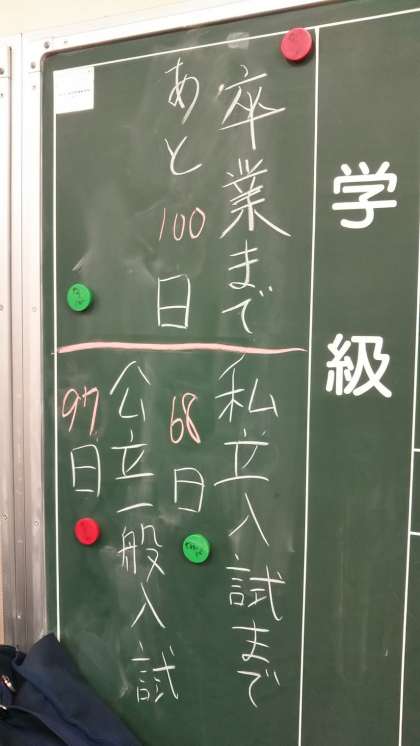 学級
卒業まで
あと100日
私立入試まで
68日
公立一般入試
97日